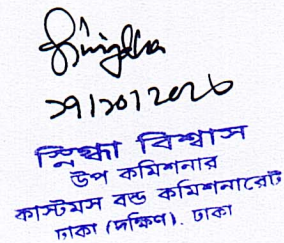 স্নিগ্ধা বিশ্বাস
উপ কমিশনার
কাস্টমস বন্ড কমিশনারেট
ঢাকা (দক্ষিণ). ঢাকা